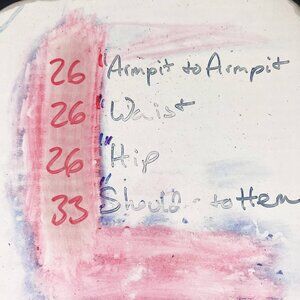 26" Armpit to Armpit
26" Waist
26" Hip
33" Should to Hem